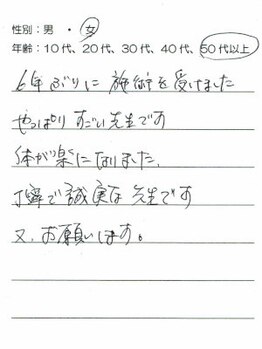 性別：男 ・ 女
年齢：10代、20代、30代、40代、50代以上
6年ぶりに施術を受けました
やっぱりすごい先生です
体が楽になりました。
丁寧で誠実な先生です
又、お願いします。